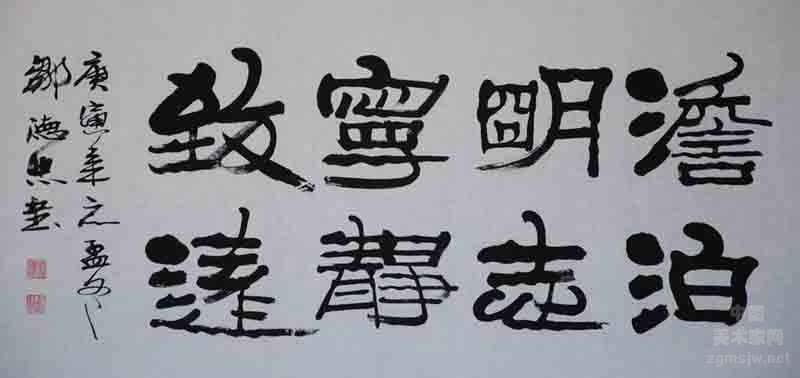 澹泊
明志
寧靜
致遠
庚寅年之孟
鄒德忠書
中国
美术家网
zgmsjw.net